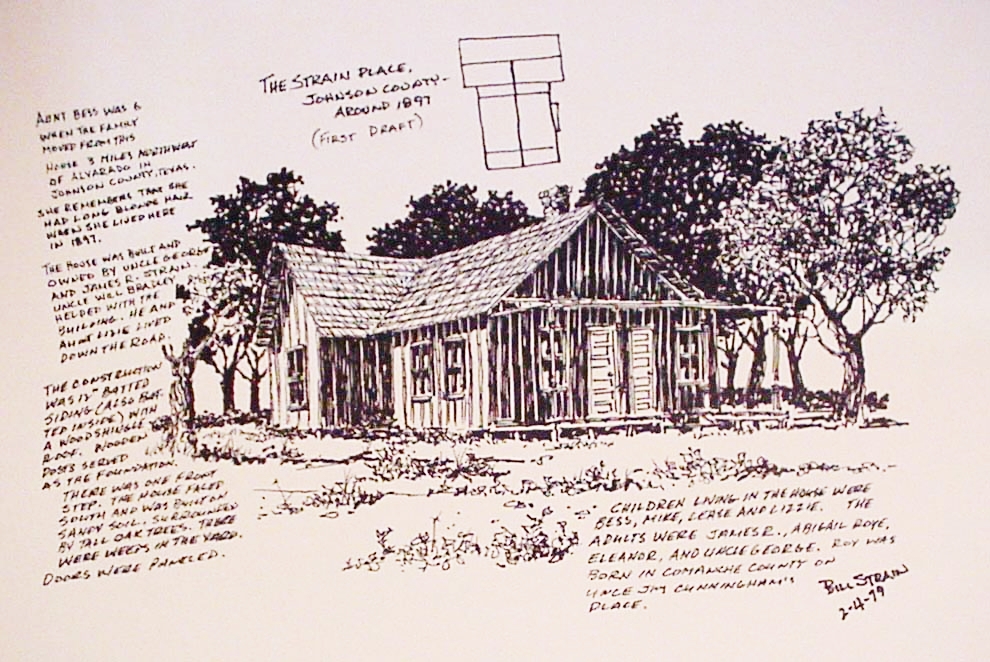 THE STRAIN PLACE,
JOHNSON COUNTY-
AROUND 1897
(FIRST DRAFT)
AUNT BESS WAS 6
WHEN THE FAMILY
MOVED FROM THIS
HOUSE 3 MILES NORTHWEST
OF ALVARADO IN
JOHNSON COUNTY, TEXAS.
SHE REMEMBERS THAT SHE
HAD LONG BLONDE HAIR
WHEN SHE LIVED HERE
IN 1897.
THE HOUSE WAS BUILT AND
OWNED BY UNCLE GEORGE
AND JAMES R. STRAIN.
UNCLE WILL BRADLEY
HELPED WITH THE
BUILDING. HE AND
AUNT LIZIE LIVED
DOWN THE ROAD.
THE CONSTRUCTION
WAS 12" BATTED
SIDING (ALSO BAT-
TED INSIDE) WITH
A WOOD SHINGLE
ROOF. WOODEN
POSTS SERVED
AS THE FOUNDATION.
THERE WAS ONE FRONT
STEP. THE HOUSE FACED
SOUTH AND WAS BUILT ON
SANDY SOIL. SURROUNDED
BY TALL OAK TREES. THERE
WERE WEEDS IN THE YARD.
DOORS WERE PANELED.
CHILDREN LIVING IN THE HOUSE WERE
BESS, MIKE, LEASE AND LIZZIE. THE
ADULTS WERE JAMES R., ABIGAIL ROYE,
ELEANOR, AND UNCLE GEORGE. ROY WAS
BORN IN COMANCHE COUNTY ON
UNCLE JIM CUNNINGHAM'S
PLACE.
BILL STRAIN
2-4-79